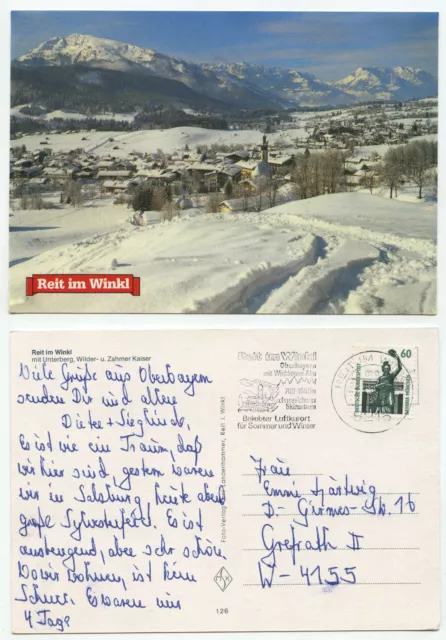 Reit im Winkl
Reit im Winkl
mit Unterberg, Wilder- u. Zahmer Kaiser
Viele Grüße aus Oberbayern
senden Dir und allen
Dieter + Sieglinde,
Es ist wie ein Traum, daß
wir hier sind, gestern waren
wir in Salzburg, heute aber
große Sylvesterfete. Es ist
anstrengend, aber sehr schön.
Wo wir wohnen, ist kein
Schnee. Es waren nur
4 Tage
Foto-Verlag
Reit i. Winkl
126
Reit im Winkl
Oberbayern
mit Winklmoos-Alm
Beliebter Luftkurort
für Sommer und Winter
REIT IM WINKL
60
Deutsche Bundespost
Frau
Emmi Hartwig
16
Grefrath II
W-4155